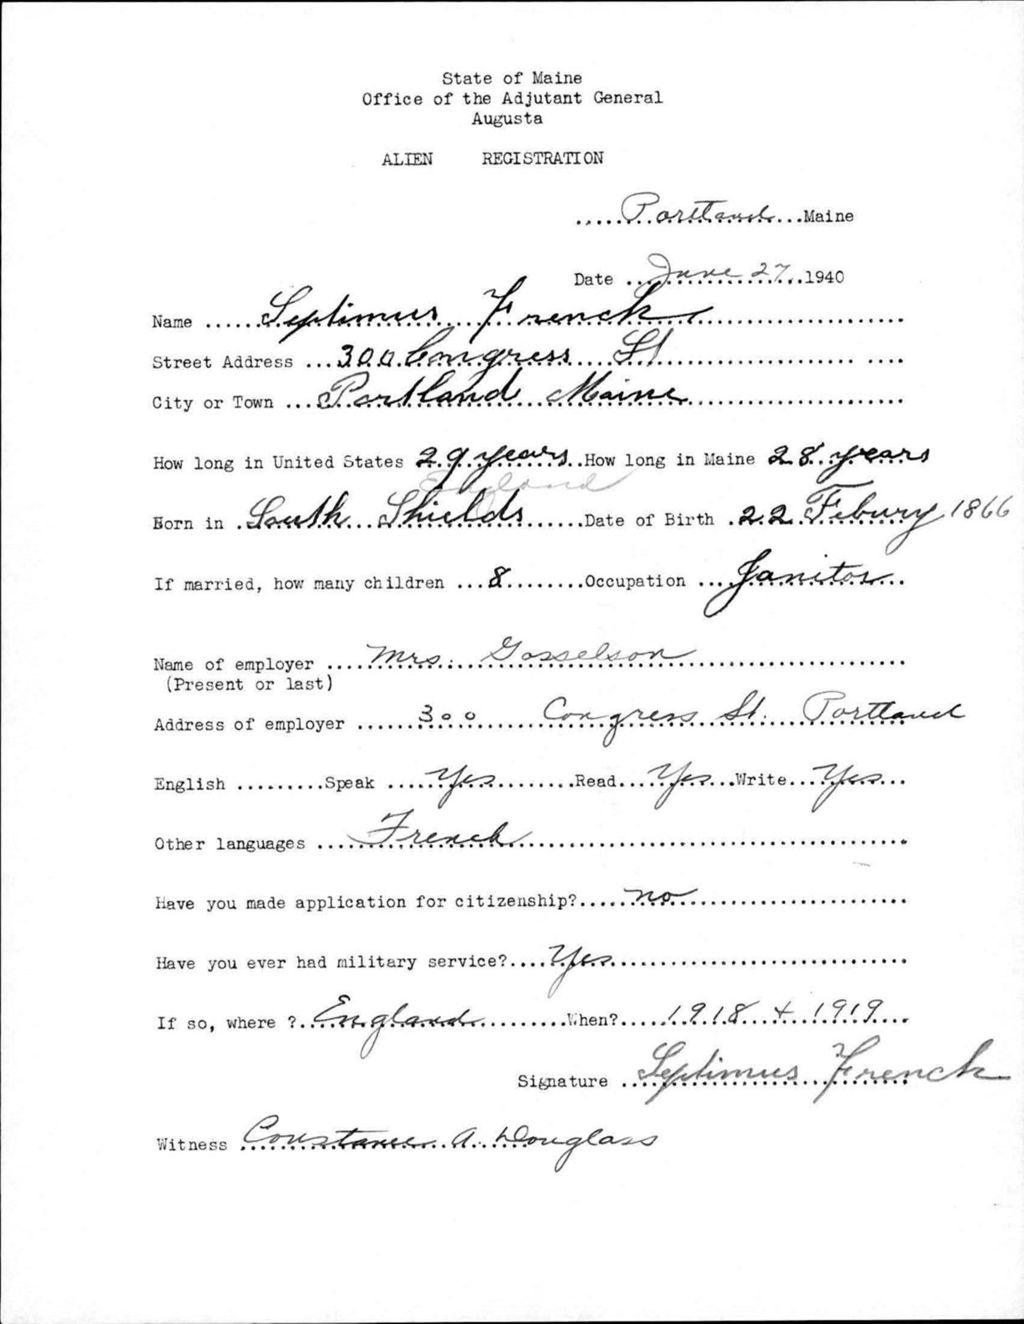 State of Maine
Office of the Adjutant General
Augusta
ALIEN REGISTRATION
.....Portland...Maine
Date ...June 27...1940
Name ......Septimus French..................
Street Address ...300 Congress St................... ....
City or Town ...Portland Maine......................
How long in United States 29 years..How long in Maine 28 years
England
Born in .South Shields......Date of Birth .22 Febury 1866
If married, how many children ...8........Occupation ....Janitor..
Name of employer ....Mrs. Gosselson.....................
(Present or last)
Address of employer ......300 Congress St. Portland
English .........Speak ....Yes.........Read...Yes...Write...Yes...
Other languages ....French.......................................
Have you made application for citizenship?.....no......................
Have you ever had military service?....Yes..............................
If so, where ?..England.........When?.....1918 + 1919...
Signature ...Septimus French
Witness Constance A. Douglass